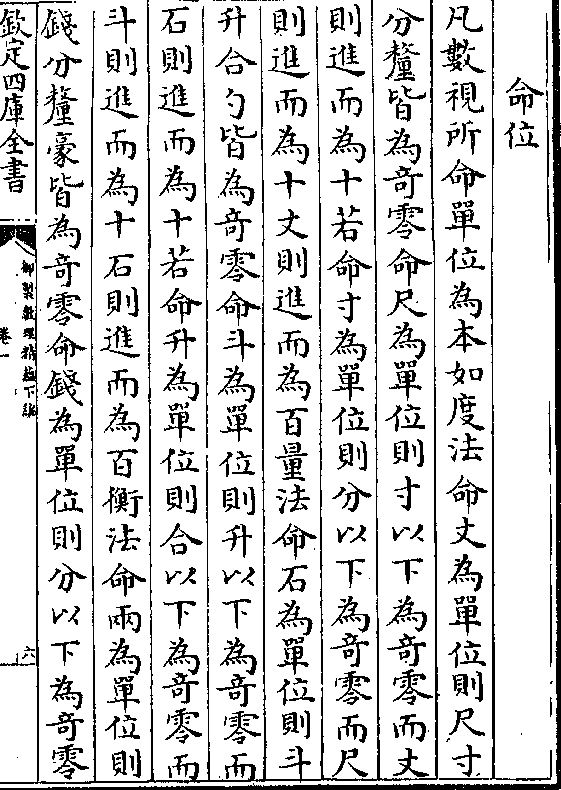 命位
凡數視所命單位為本如度法命丈為單位則尺寸
分釐皆為奇零命尺為單位則寸以下為奇零而丈
則進而為十若命寸為單位則分以下為奇零而尺
則進而為十丈則進而為百量法命石為單位則斗
升合勺皆為奇零命斗為單位則升以下為奇零而
石則進而為十若命升為單位則合以下為奇零而
斗則進而為十石則進而為百衡法命兩為單位則
錢分釐豪皆為奇零命錢為單位則分以下為奇零
欽定四庫全書
御製數理精蘊下編
卷一
六